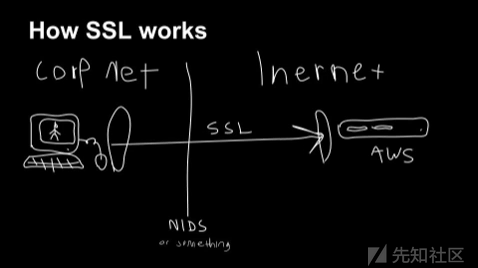 How SSL works
Corp Net
Inernet
SSL
AWS
NIDS
or something
先知社区